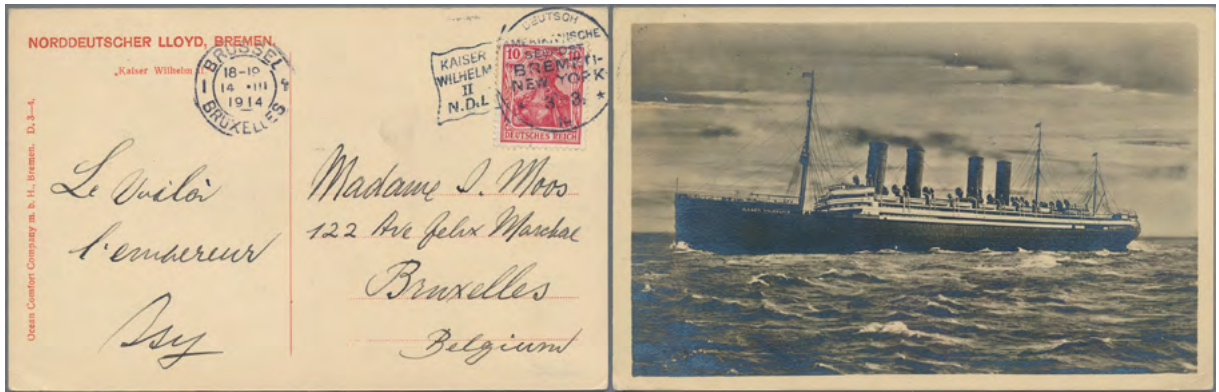 NORDDEUTSCHER LLOYD, BREMEN.
„Kaiser Wilhelm II.“
BRUSSEL
18-19
14 III
1914
1 BRUXELLES 4
KAISER
WILHELM
II
N.D.L
DEUTSCH
AMERIKANISCHE
SEEPOST
BREMEN-
NEW YORK
3. 3.
10 10
DEUTSCHES REICH
Ocean Comfort Company m. b. H., Bremen. D. 3—4.
Le voilà
l'empereur
Isy
Madame S. Moos
122 Ave felix Marchal
Bruxelles
Belgium